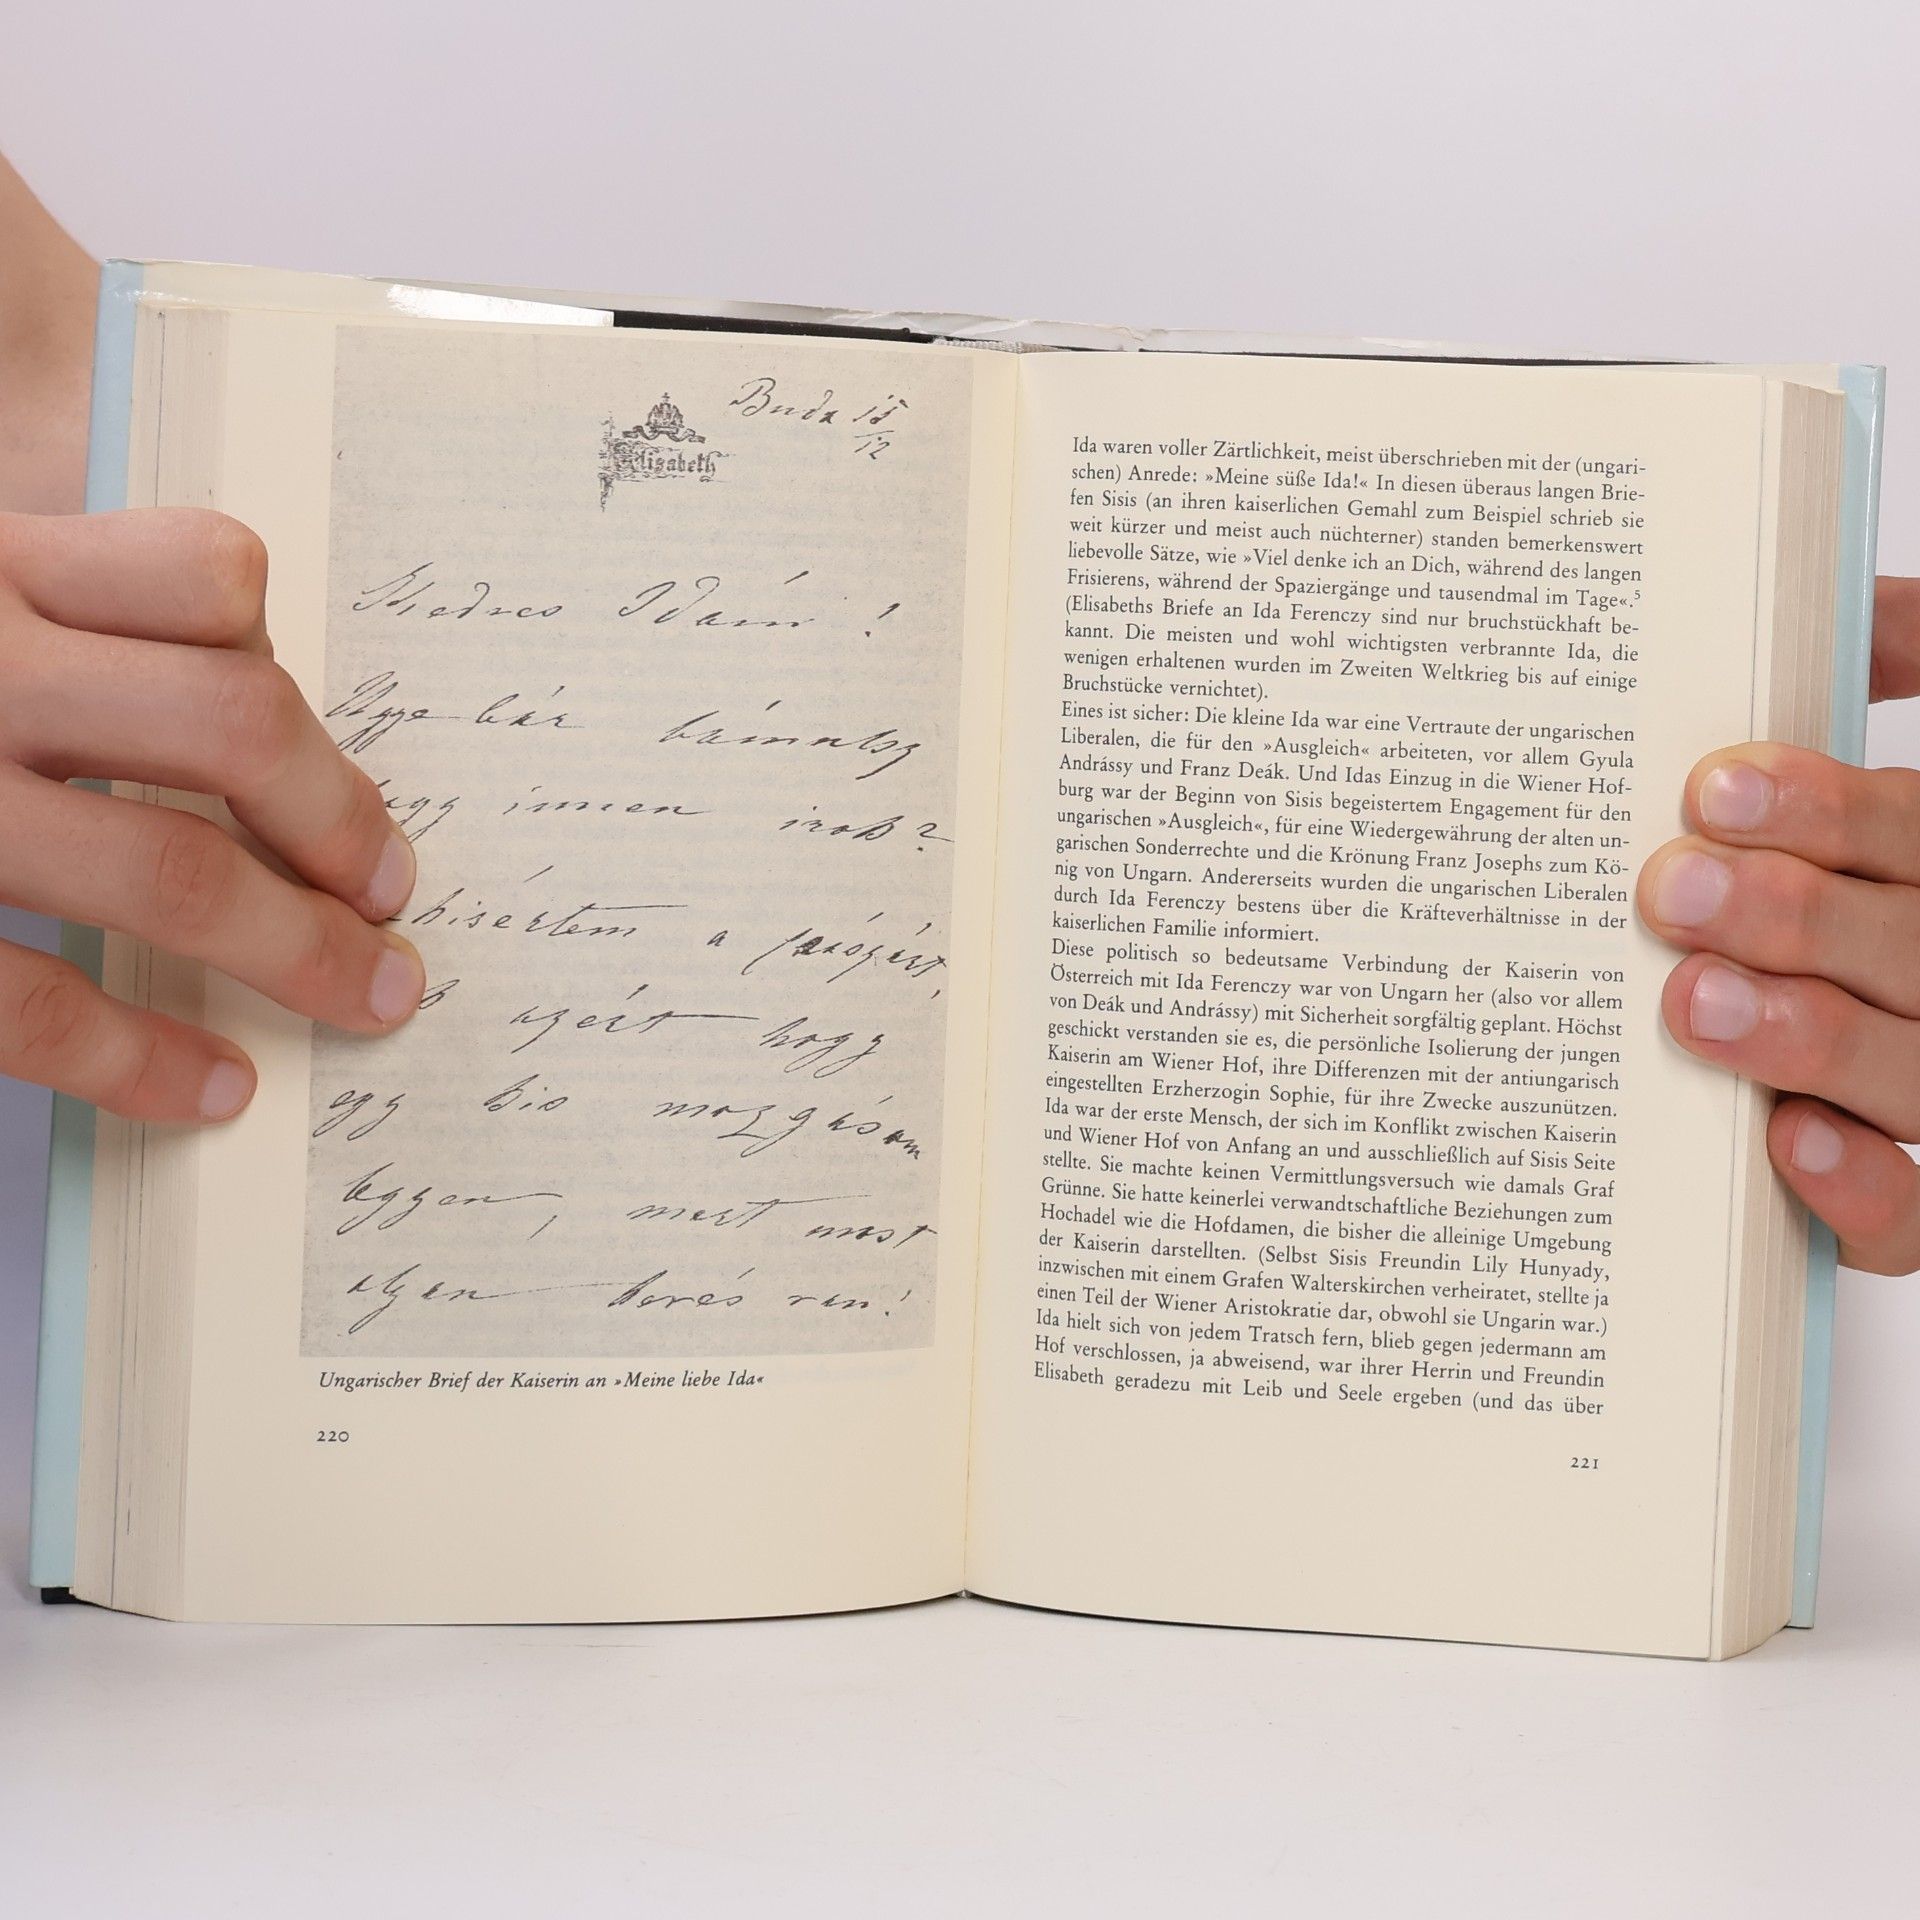 Buda 15/12
Elisabeth
Kedves Idám!
Ugye bár bámulsz
hogy innen irok?
kisértem a
azért hogy
egy kis mozgásom
legyen, mert most
olyan kevés van!
Ungarischer Brief der Kaiserin an »Meine liebe Ida«
220
Ida waren voller Zärtlichkeit, meist überschrieben mit der (ungari-
schen) Anrede: »Meine süße Ida!« In diesen überaus langen Brie-
fen Sisis (an ihren kaiserlichen Gemahl zum Beispiel schrieb sie
weit kürzer und meist auch nüchterner) standen bemerkenswert
liebevolle Sätze, wie »Viel denke ich an Dich, während des langen
Frisierens, während der Spaziergänge und tausendmal im Tage«.⁵
(Elisabeths Briefe an Ida Ferenczy sind nur bruchstückhaft be-
kannt. Die meisten und wohl wichtigsten verbrannte Ida, die
wenigen erhaltenen wurden im Zweiten Weltkrieg bis auf einige
Bruchstücke vernichtet).
Eines ist sicher: Die kleine Ida war eine Vertraute der ungarischen
Liberalen, die für den »Ausgleich« arbeiteten, vor allem Gyula
Andrássy und Franz Deák. Und Idas Einzug in die Wiener Hof-
burg war der Beginn von Sisis begeistertem Engagement für den
ungarischen »Ausgleich«, für eine Wiedergewährung der alten un-
garischen Sonderrechte und die Krönung Franz Josephs zum Kö-
nig von Ungarn. Andererseits wurden die ungarischen Liberalen
durch Ida Ferenczy bestens über die Kräfteverhältnisse in der
kaiserlichen Familie informiert.
Diese politisch so bedeutsame Verbindung der Kaiserin von
Österreich mit Ida Ferenczy war von Ungarn her (also vor allem
von Deák und Andrássy) mit Sicherheit sorgfältig geplant. Höchst
geschickt verstanden sie es, die persönliche Isolierung der jungen
Kaiserin am Wiener Hof, ihre Differenzen mit der antiungarisch
eingestellten Erzherzogin Sophie, für ihre Zwecke auszunützen.
Ida war der erste Mensch, der sich im Konflikt zwischen Kaiserin
und Wiener Hof von Anfang an und ausschließlich auf Sisis Seite
stellte. Sie machte keinen Vermittlungsversuch wie damals Graf
Grünne. Sie hatte keinerlei verwandtschaftliche Beziehungen zum
Hochadel wie die Hofdamen, die bisher die alleinige Umgebung
der Kaiserin darstellten. (Selbst Sisis Freundin Lily Hunyady,
inzwischen mit einem Grafen Walterskirchen verheiratet, stellte ja
einen Teil der Wiener Aristokratie dar, obwohl sie Ungarin war.)
Ida hielt sich von jedem Tratsch fern, blieb gegen jedermann am
Hof verschlossen, ja abweisend, war ihrer Herrin und Freundin
Elisabeth geradezu mit Leib und Seele ergeben (und das über
221